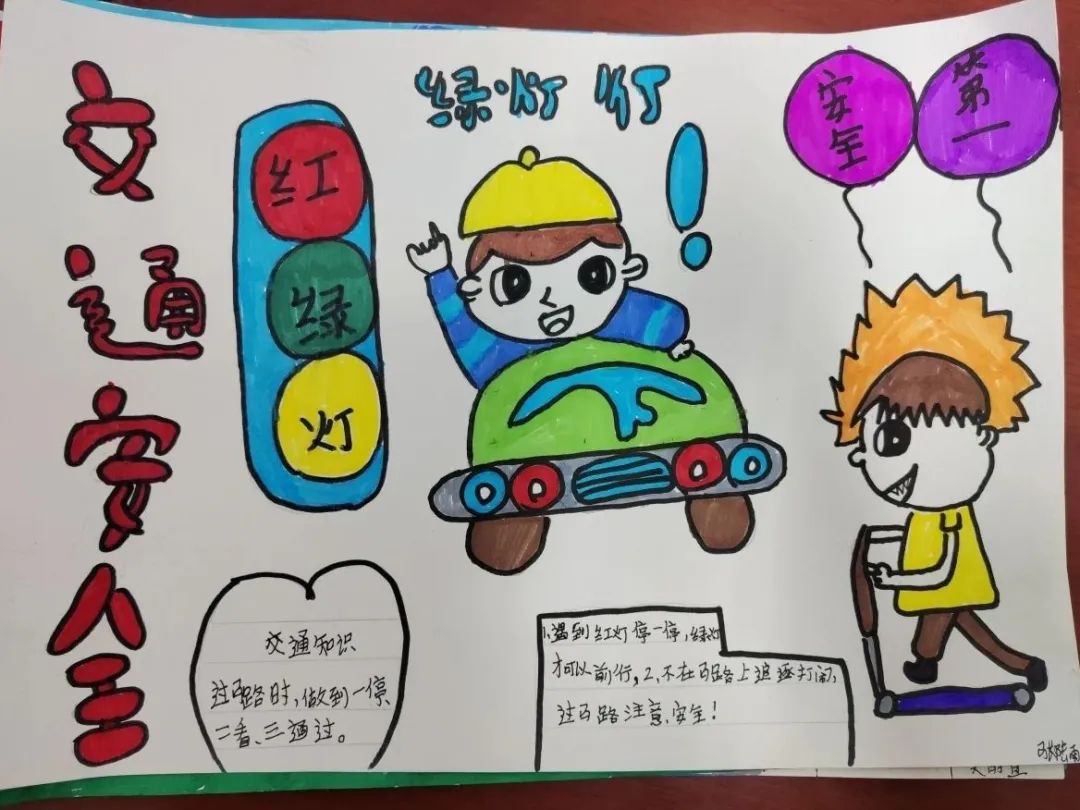 交通安全
红
绿
灯
绿灯
安全
第一
交通知识
过马路时,做到一停、
二看、三通过。
1、遇到红灯停一停,绿灯
才可以前行,2、不在马路上追逐打闹,
过马路注意、安全!